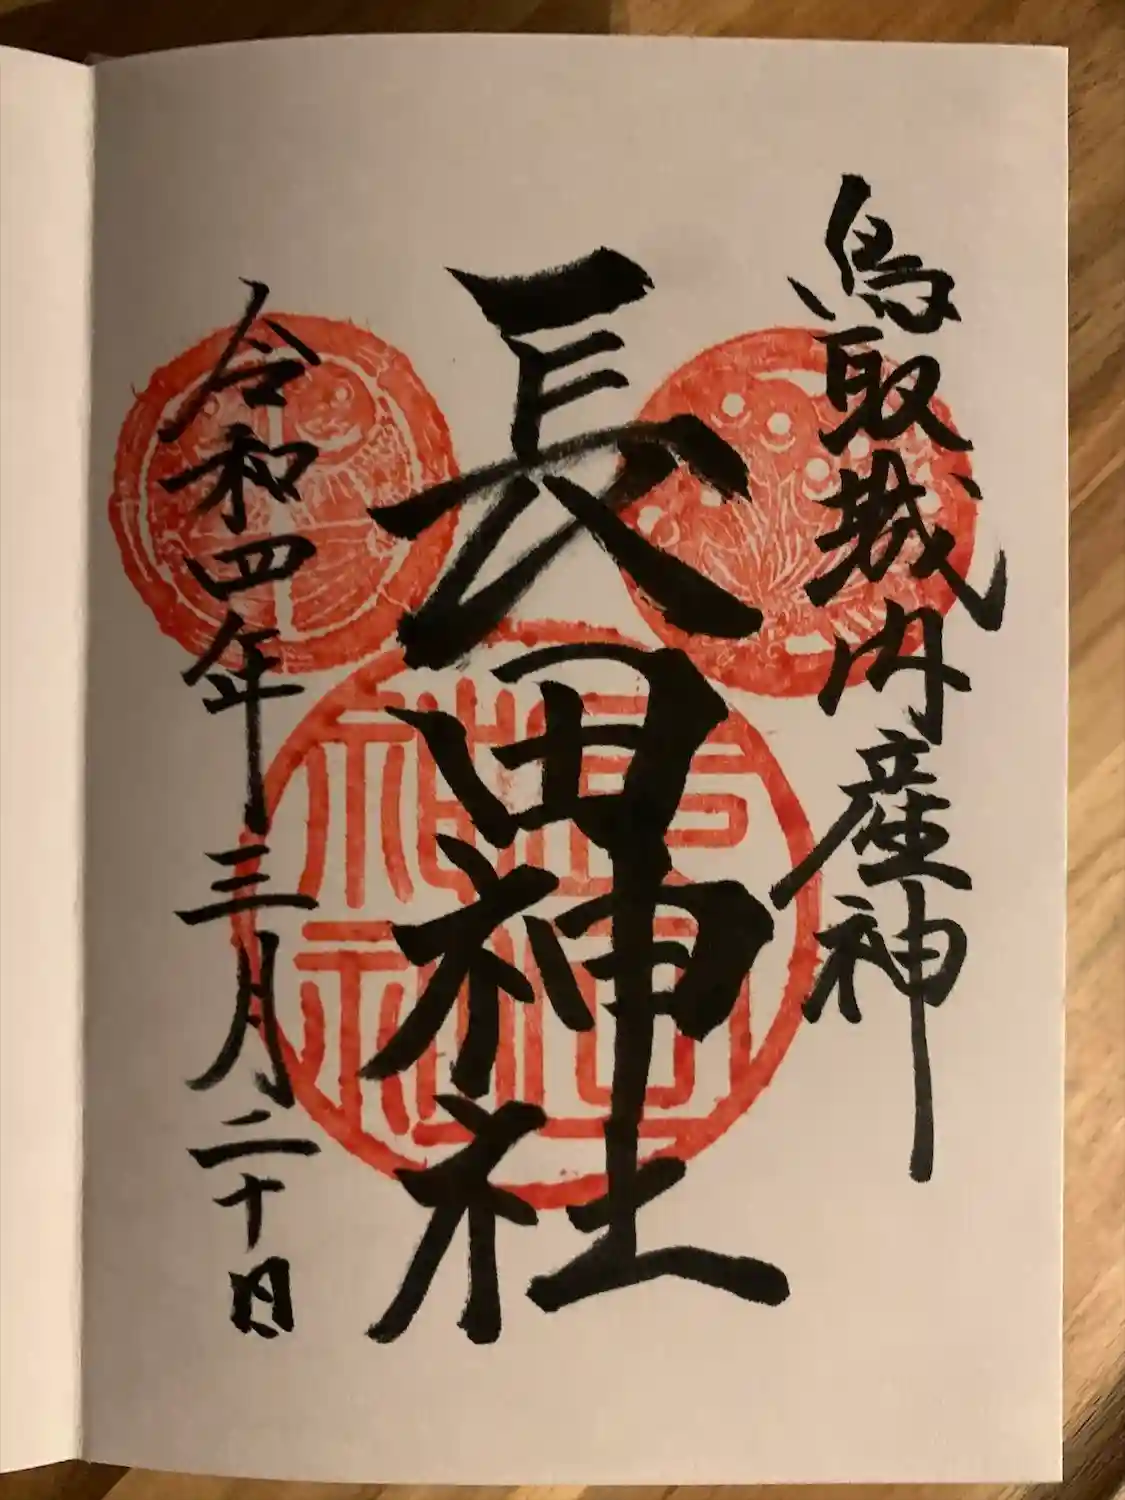 鳥取城内産神
長田神社
令和四年三月二十日